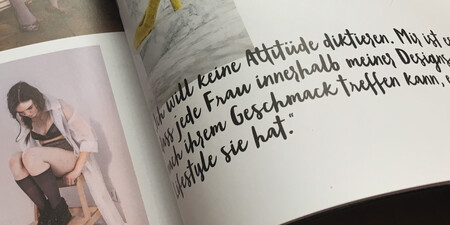 ch will keine Attitüde diktieren. Mir ist
ass jede Frau innerhalb meiner Designs
ach ihrem Geschmack treffen kann,
ifestyle sie hat."